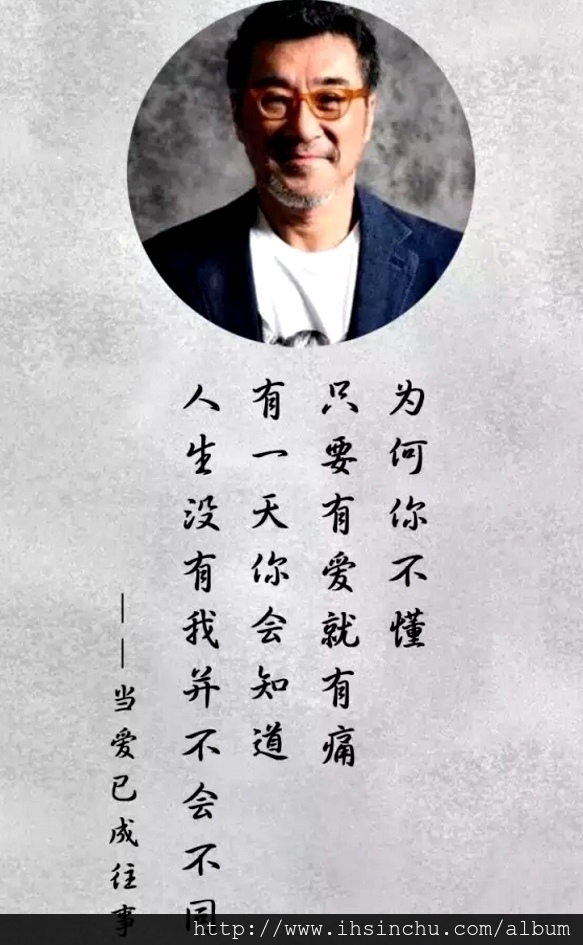 为何你不懂
只要有爱就有痛
有一天你会知道
人生没有我并不会不同
——当爱已成往事
http://www.ihsinchu.com/album